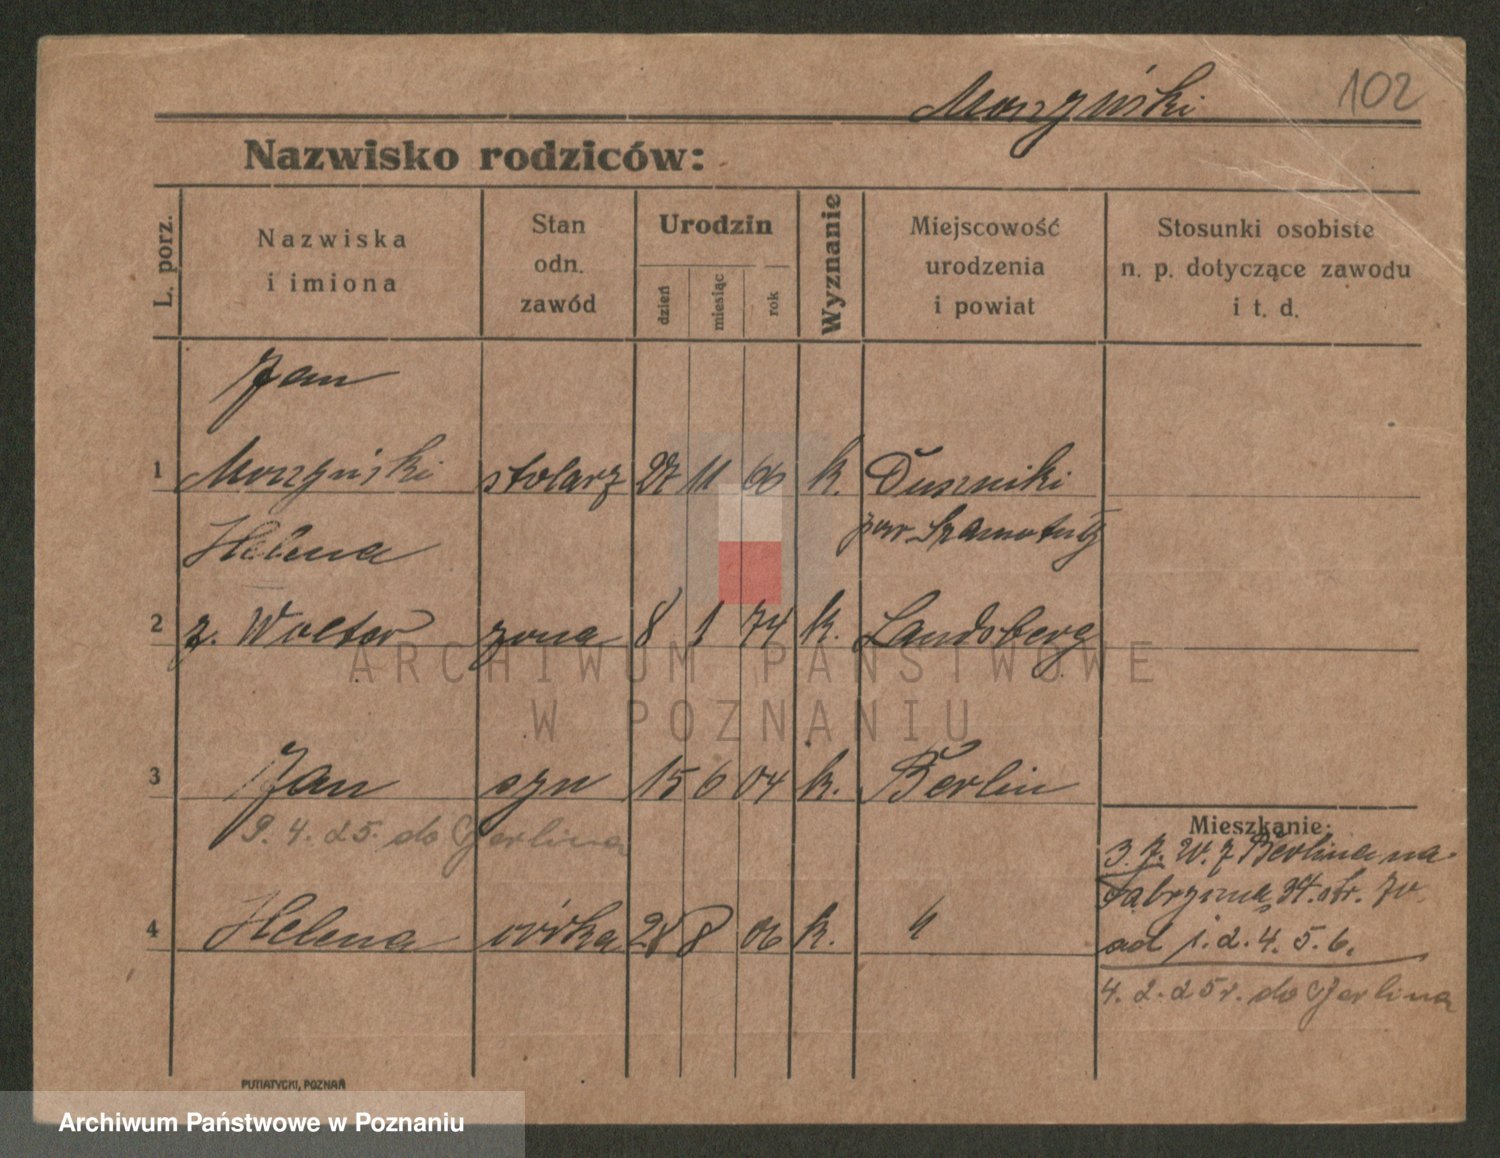 Morzyński
102
Nazwisko rodziców:
L. porz.
Nazwiska
i imiona
Stan
odn.
zawód
Urodzin
dzień
miesiąc
rok
Wyznanie
Miejscowość
urodzenia
i powiat
Stosunki osobiste
n. p. dotyczące zawodu
i t. d.
Jan
1 Morzyński stolarz 27 11 66 k. Duszniki
pow. Szamotuły
Helena
2 z. Wolter żona 8 1 74 k. Landsberg
3 Jan syn 15 6 04 k. Berlin
9. 4. 25. do Berlina
4 Helena córka 28 8 06 k. "
Mieszkanie:
3. z Berlina na
34.
od 1. 2. 4. 5. 6.
4. 2. 25 r. do Berlina
PUTIATYCKI, POZNAŃ
ARCHIWUM PAŃSTWOWE
W POZNANIU
Archiwum Państwowe w Poznaniu